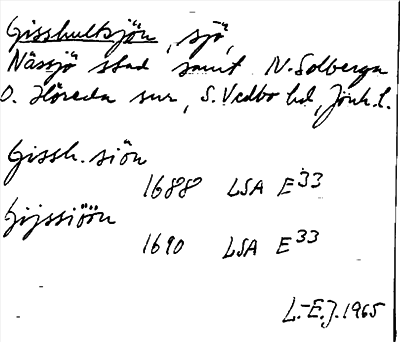 Gisshultsjön, sjö,
Nässjö stad samt N. Solberga
o. Höreda snr, S. Vedbo hd, Jönk. l.
Gissh. siön
1688 LSA E33
Gijssiöön
1690 LSA E33
L.-E.J. 1965